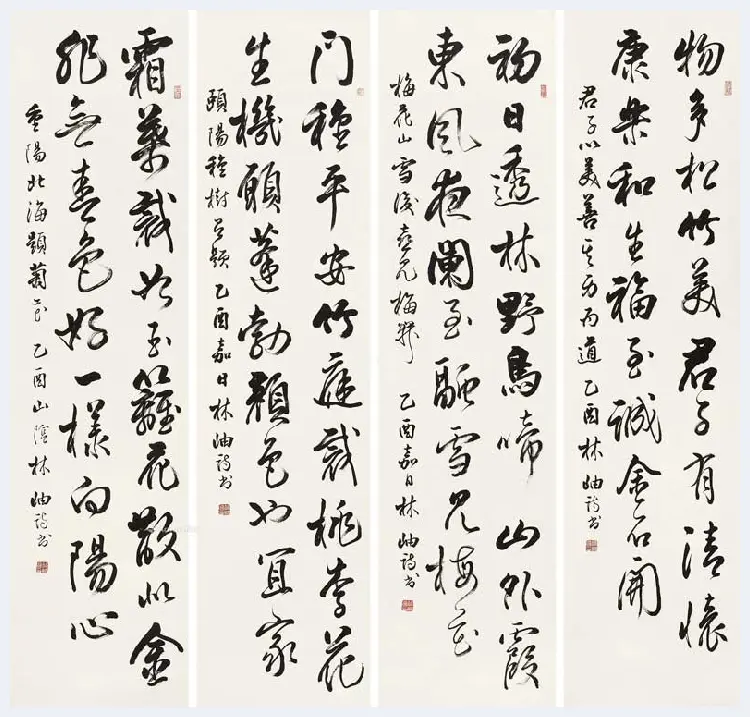 物多松竹美君子有清懷
康樂和生福至誠金石開
君子以美善其道 乙酉林岫詩書
初日透林野鳥啼山外霞
東風夜闌至融雪見梅花
梅花山雪後喜見梅 乙酉嘉日林岫詩書
門種平安竹庭栽桃李花
生機頤蓬勃顏色也宜家
頤陽種樹題 乙酉嘉日林岫詩書
霜葉裁如玉籬花散似金
非無春色好一樣向陽心
重陽北海題菊花 乙酉山陰林岫詩書